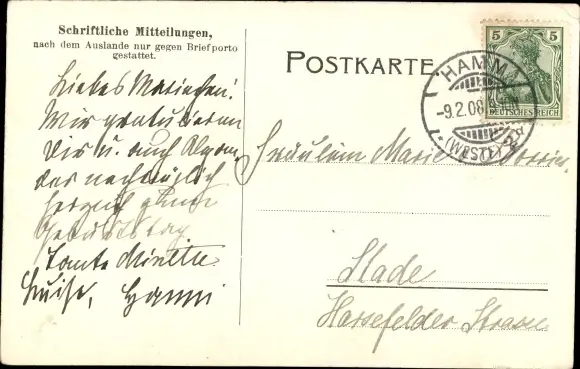 Schriftliche Mitteilungen,
nach dem Auslande nur gegen Briefporto
gestattet.
Liebes Mariechen!
Wir gratulieren
Dir u. auch
nachträglich
herzlich zum
Geburtstag
Tante
Luise, Hanni
POSTKARTE
5 5
DEUTSCHES REICH
HAMM
-9.2.08
(WESTF.)
Fräulein Marie
Stade
Harsefelder Strasse